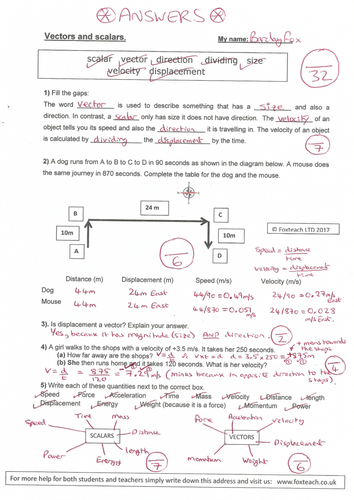 ANSWERS
Vectors and scalars.
My name: Barclay Fox
scalar vector direction dividing size
velocity displacement
32
1) Fill the gaps:
The word vector is used to describe something that has a size and also a
direction. In contrast, a scalar only has size it does not have direction. The velocity of an
object tells you its speed and also the direction it is travelling in. The velocity of an object
is calculated by dividing the displacement by the time.
7
2) A dog runs from A to B to C to D in 90 seconds as shown in the diagram below. A mouse does
the same journey in 870 seconds. Complete the table for the dog and the mouse.
24 m
B
C
10m
10m
A
D
6
© Foxteach LTD 2017
Speed = distance
time
Velocity = displacement
time
Distance (m) Displacement (m) Speed (m/s) Velocity (m/s)
Dog 44m 24m East 44/90 = 0.49m/s 24/90 = 0.27m/s East
Mouse 44m 24m East 44/870 = 0.051 m/s 24/870 = 0.028 m/s East.
3). Is displacement a vector? Explain your answer.
Yes, because it has magnitude (size) AND direction.
2
4) A girl walks to the shops with a velocity of +3.5 m/s. It takes her 250 seconds.
+ means towards the shops
(a) How far away are the shops? V = d/t ∴ vxt = d = 3.5 x 250 = +875m
(b) She then runs home and it takes 120 seconds. What is her velocity?
4
V = d/t = 875/120 = -7.29 m/s (minus because in opposite direction to the shops).
5) Write each of these quantities next to the correct box.
Speed Force Acceleration Time Mass Velocity Distance length
Displacement Energy Weight (because it is a force) Momentum Power
SCALARS
Speed
Time
Mass
Distance
length
Energy
Power
7
VECTORS
Force
Acceleration
Velocity
Displacement
Weight
Momentum
6
For more help for both students and teachers simply write down this address and visit us: www.foxteach.co.uk